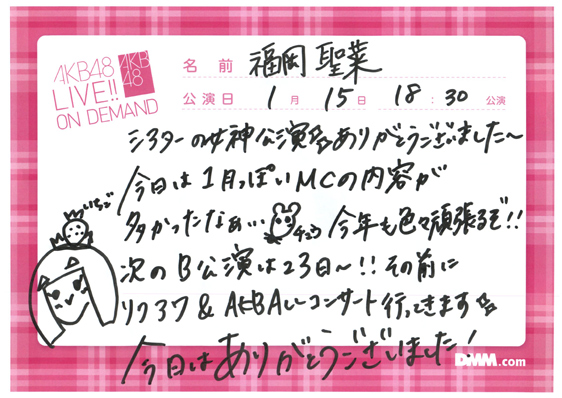 AKB48
LIVE!!
ON DEMAND
AKB
48
名前 福岡聖菜
公演日 1月 15日 18:30 公演
シアターの女神公演ありがとうございました〜
今日は1月っぽいMCの内容が
多かったなぁ… チュウ 今年も色々頑張るぞ!!
いちご
次のB公演は23日〜!! その前に
リクアワ & AKBAしーコンサート行ってきます
今日はありがとうございました!
DMM.com